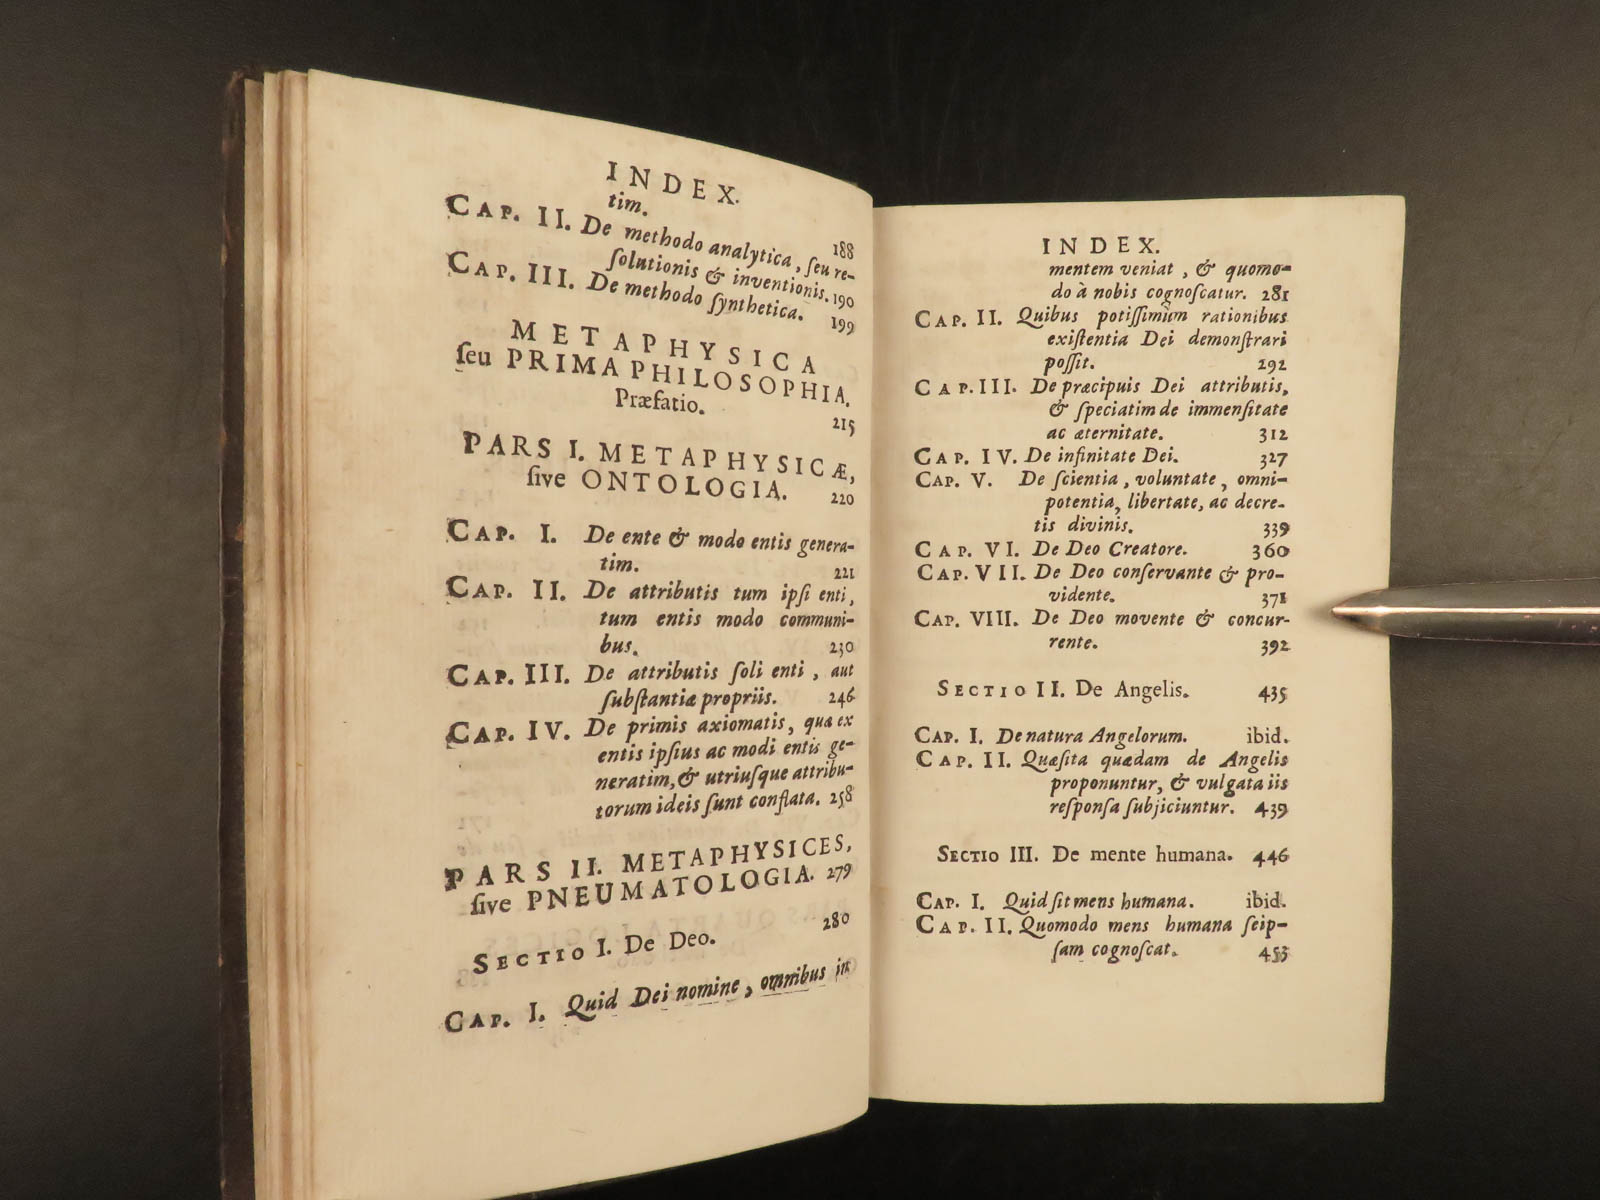 INDEX.
tim. 188
CAP. II. De methodo analytica, ſeu re-
ſolutionis & inventionis. 190
CAP. III. De methodo ſynthetica. 199
METAPHYSICA
ſeu PRIMA PHILOSOPHIA.
Præfatio. 215
PARS I. METAPHYSICÆ,
ſive ONTOLOGIA. 220
CAP. I. De ente & modo entis genera-
tim. 221
CAP. II. De attributis tum ipſi enti,
tum entis modo communi-
bus. 230
CAP. III. De attributis ſoli enti, aut
ſubſtantiæ propriis. 246
CAP. IV. De primis axiomatis, quæ ex
entis ipſius ac modi entis ge-
neratim, & utriuſque attribu-
torum ideis ſunt conflata. 258
PARS II. METAPHYSICES,
ſive PNEUMATOLOGIA. 279
SECTIO I. De Deo. 280
CAP. I. Quid Dei nomine, omnibus in
INDEX.
mentem veniat, & quomo-
do à nobis cognoſcatur. 281
CAP. II. Quibus potiſſimùm rationibus
exiſtentia Dei demonſtrari
poſſit. 292
CAP. III. De præcipuis Dei attributis,
& ſpeciatim de immenſitate
ac æternitate. 312
CAP. IV. De infinitate Dei. 327
CAP. V. De ſcientia, voluntate, omni-
potentia, libertate, ac decre-
tis divinis. 339
CAP. VI. De Deo Creatore. 360
CAP. VII. De Deo conſervante & pro-
vidente. 371
CAP. VIII. De Deo movente & concur-
rente. 392
SECTIO II. De Angelis. 435
CAP. I. De natura Angelorum. ibid.
CAP. II. Quæſita quædam de Angelis
proponuntur, & vulgata iis
reſponſa ſubjiciuntur. 439
SECTIO III. De mente humana. 446
CAP. I. Quid ſit mens humana. ibid.
CAP. II. Quomodo mens humana ſeip-
ſam cognoſcat. 453